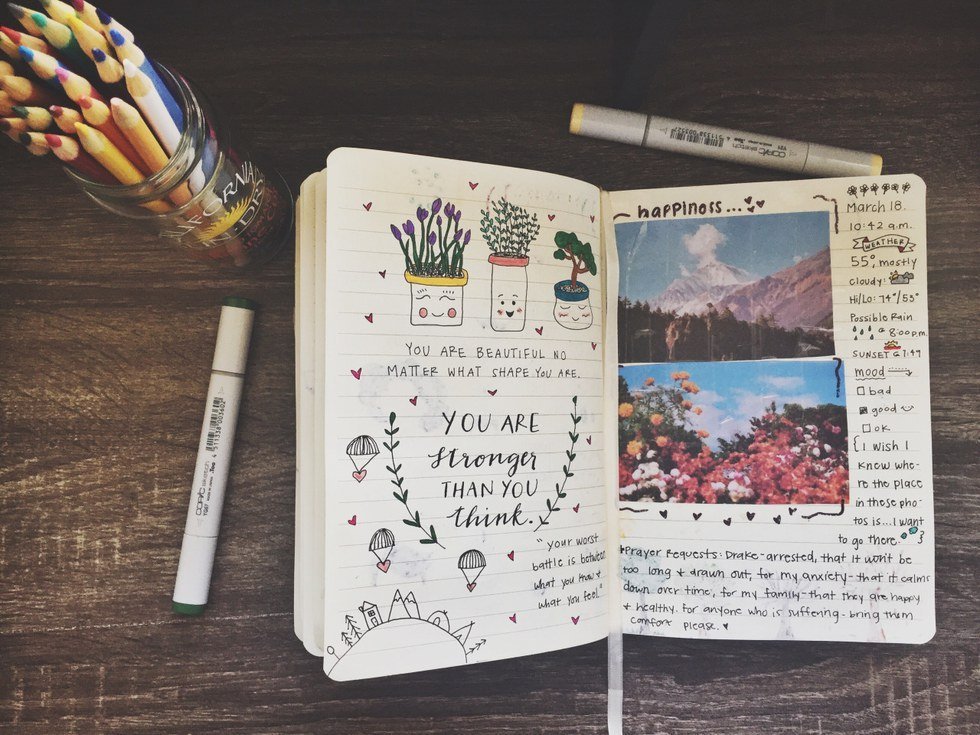 YOU ARE BEAUTIFUL NO
MATTER WHAT SHAPE YOU ARE.
YOU ARE
stronger
THAN YOU
think.
"your worst
battle is between
what you know +
what you feel."
happiness...
March 18.
10:42 a.m.
WEATHER
55°, mostly
cloudy:
Hi/Lo: 74°/55°
Possible Rain
@ 8:00pm
SUNSET @ 7:49
mood
bad
good
ok
{I wish I
knew whe-
re the place
in these pho-
tos is... I want
to go there. }
Prayer Requests: Drake-arrested, that it won't be
too long & drawn out, for my anxiety-that it calms
down over time, for my family-that they are happy
& healthy. for anyone who is suffering-bring them
comfort please.
COPIC sketch
COPIC sketch